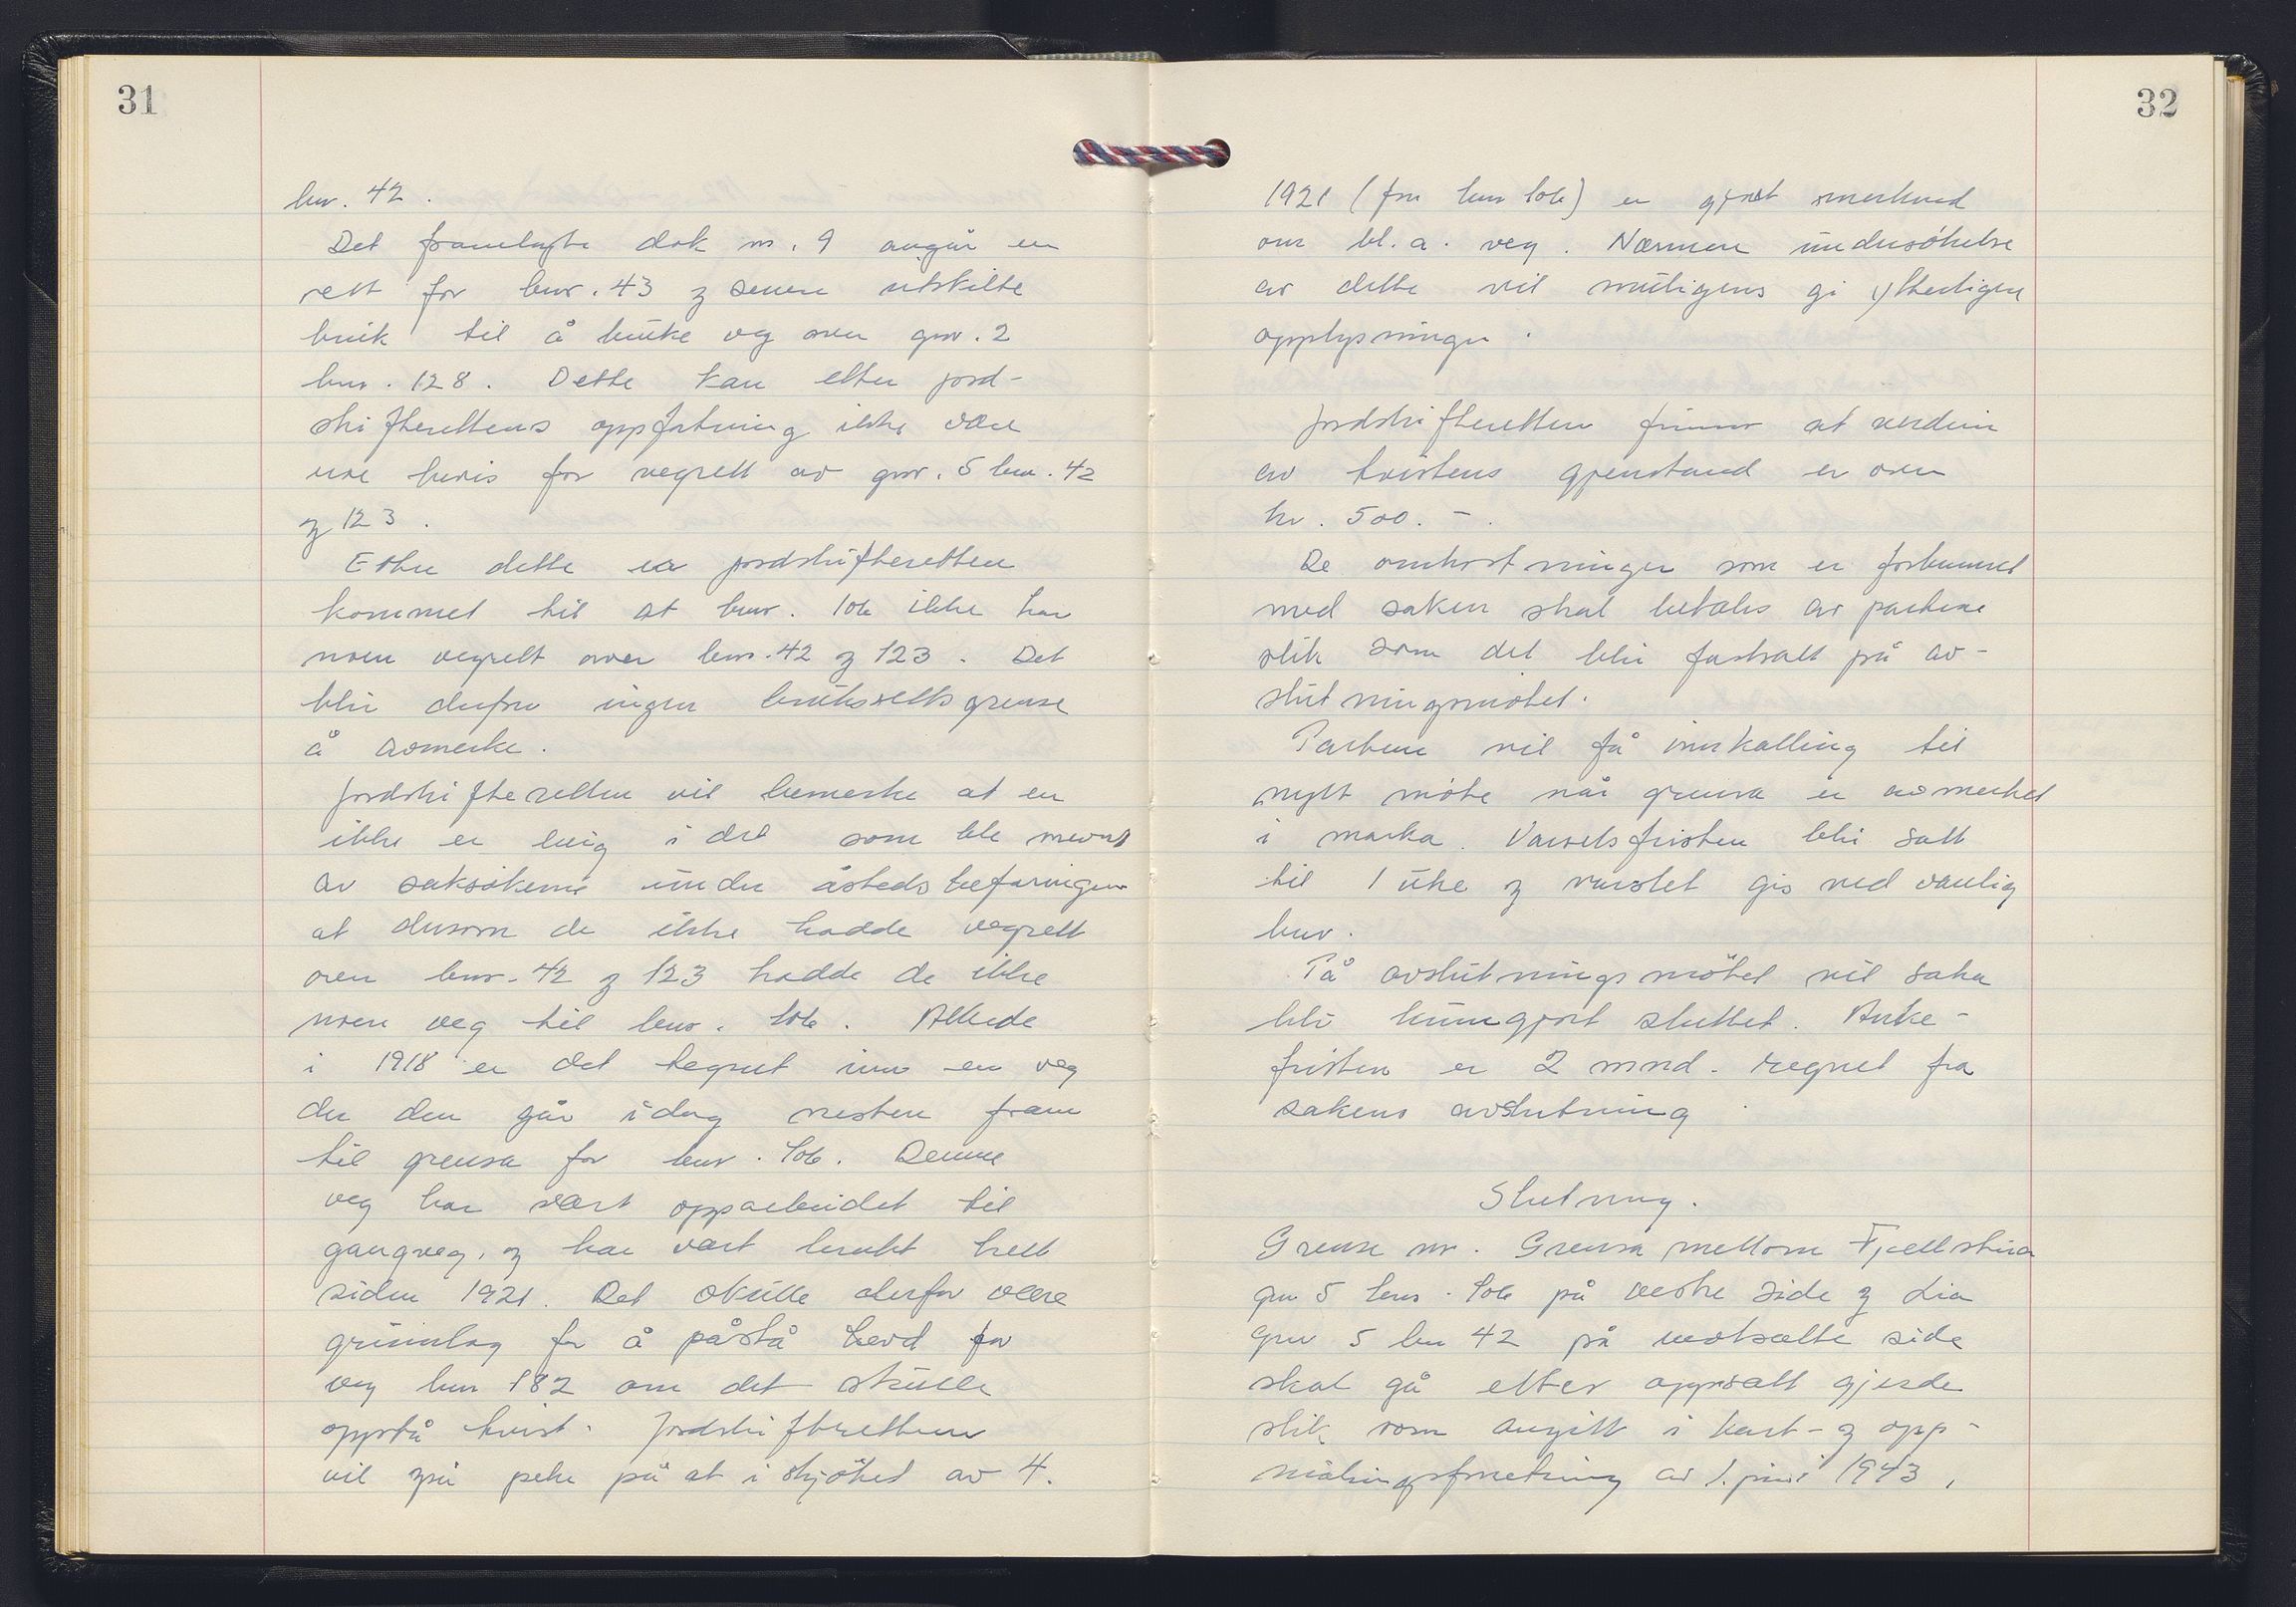 31
bnr. 42.
Det framlagte dok nr. 9 angår en
rett for bnr. 43 og senere utskilte
bruk til å bruke veg over gnr. 2
bnr. 128. Dette kan etter jord-
skifterettens oppfatning ikke være
noe bevis for vegrett av gnr. 5 bnr. 42
og 123.
Etter dette er jordskifteretten
kommet til at bnr. 106 ikke har
noen vegrett over bnr. 42 og 123. Det
blir derfor ingen bruksrettsgrense
å avmerke.
Jordskifteretten vil bemerke at en
ikke er enig i det som ble nevnt
av saksøkerne under åstedsbefaringen
at dersom de ikke hadde vegrett
over bnr. 42 og 123 hadde de ikke
noen veg til bnr. 106. Allerede
i 1918 er det tegnet inn en veg
der den går idag nesten fram
til grensa for bnr. 106. Denne
veg har vært opparbeidet til
gangveg, og har vært brukt helt
siden 1921. Det skulle derfor være
grunnlag for å påstå hevd for
veg bnr 182 om det skulle
oppstå tvist. Jordskifteretten
vil også peke på at i skjøtet av 4.
32
1921 (for bnr 106) er gjort merknad
om bl.a. veg. Nærmere undersøkelse
av dette vil muligens gi ytterligere
opplysninger.
Jordskifteretten finner at verdien
av tvistens gjenstand er over
kr. 500.-.
De omkostninger som er forbundet
med saken skal betales av partene
slik som det blir fastsatt på av-
slutningsmøtet.
Partene vil få innkalling til
nytt møte når grensa er avmerket
i marka. Varselsfristen blir satt
til 1 uke og varslet gis ved vanlig
brev.
På avslutningsmøtet vil saka
bli kunngjort sluttet. Anke-
fristen er 2 mnd. regnet fra
sakens avslutning.
Slutning.
Grense nr. Grensa mellom Fjellstua
gnr 5 bnr. 106 på vestre side og Lia
gnr 5 bnr 42 på motsatte side
skal gå etter oppsatt gjerde
slik som angitt i kart- og opp-
målingsforretning av 1. juni 1943,